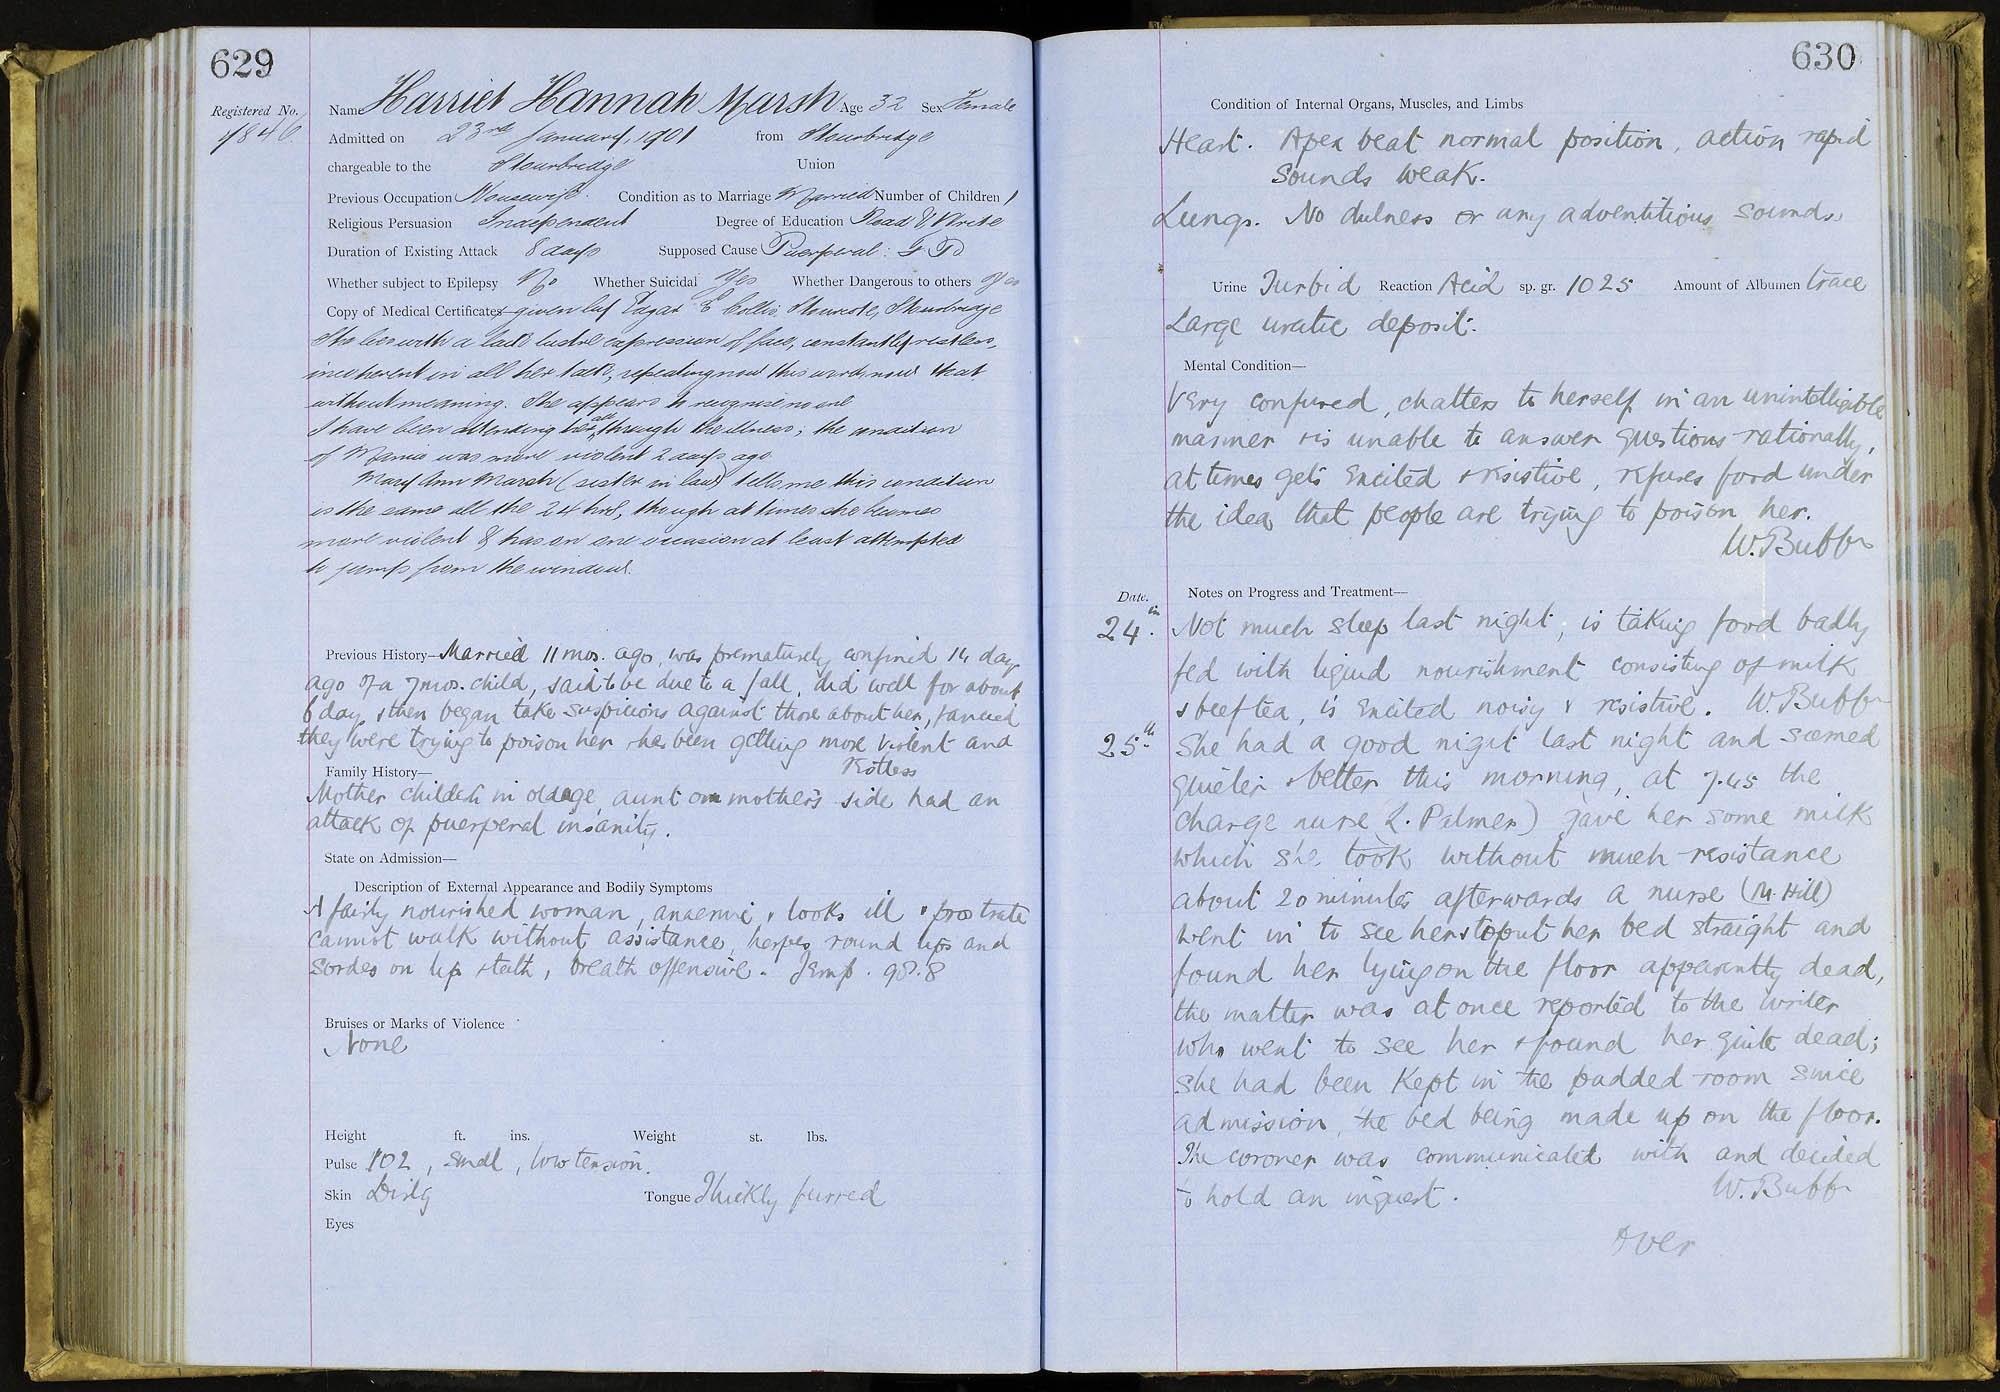 629
Registered No.
Name Harriet Hannah Marsh Age 32 Sex Female
7846
Admitted on 23rd January, 1901 from Stourbridge
chargeable to the Stourbridge Union
Previous Occupation Housewife. Condition as to Marriage Married Number of Children 1
Religious Persuasion Independent Degree of Education Read & Write
Duration of Existing Attack 8 days Supposed Cause Puerperal:
Whether subject to Epilepsy No Whether Suicidal Yes Whether Dangerous to others Yes
Copy of Medical Certificates given by Edgar E Collis, Stourbridge
She lies with a lack lustre expression of face, constantly restless,
incoherent in all her talk, repeating now this word, now that
without meaning. She appears to recognise no one
I have been attending her all through the illness; the condition
of Mania was more violent 2 days ago
Mary Ann Marsh (sister in law) tells me this condition
is the same all the 24 hrs, though at times she becomes
more violent & has on one occasion at least attempted
to jump from the window.
Previous History— Married 11 mos. ago, was prematurely confined 14 days
ago of a 7 mos. child, said to be due to a fall, did well for about
6 days & then began take suspicions against those about her, fancied
they were trying to poison her & has been getting more violent and
restless
Family History—
Mother childish in old age, aunt on mother's side had an
attack of puerperal insanity.
State on Admission—
Description of External Appearance and Bodily Symptoms
A fairly nourished woman, anaemic & looks ill & prostrate
cannot walk without assistance, herpes round lips and
sordes on lips & teeth, breath offensive. Temp. 98.8
Bruises or Marks of Violence
None
Height ft. ins. Weight st. lbs.
Pulse 102, small, low tension.
Skin Dirty Tongue Thickly furred
Eyes
630
Condition of Internal Organs, Muscles, and Limbs
Heart. Apex beat normal position, action rapid
sounds weak.
Lungs. No dulness or any adventitious sounds.
Urine Turbid Reaction Acid sp. gr. 1025 Amount of Albumen trace
Large uratic deposit.
Mental Condition—
Very confused, chatters to herself in an unintelligible
manner & is unable to answer questions rationally,
at times gets excited & resistive, refuses food under
the idea that people are trying to poison her.
W. Bubb
Date. Notes on Progress and Treatment—
24th. Not much sleep last night, is taking food badly
fed with liquid nourishment consisting of milk
& beef tea, is excited noisy & resistive. W. Bubb
25th She had a good night last night and seemed
quieter & better this morning, at 7.45 the
charge nurse (L. Palmer) gave her some milk
which she took without much resistance
about 20 minutes afterwards a nurse (M. Hill)
went in to see her & to put her bed straight and
found her lying on the floor apparently dead,
the matter was at once reported to the writer
who went to see her & found her quite dead;
she had been kept in the padded room since
admission, the bed being made up on the floor.
The coroner was communicated with and decided
to hold an inquest. W. Bubb
Over